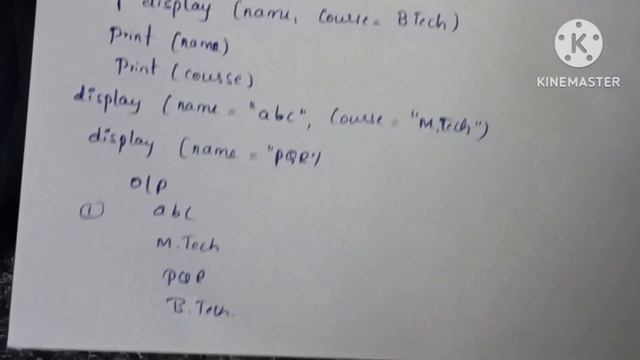 display (name, Course = BTech)
print (name)
print (course)
display (name = "abc", Course = "M.Tech")
display (name = "PQR")
O/P
① abc
M.Tech
PQR
B.Tech.
K
KINEMASTER